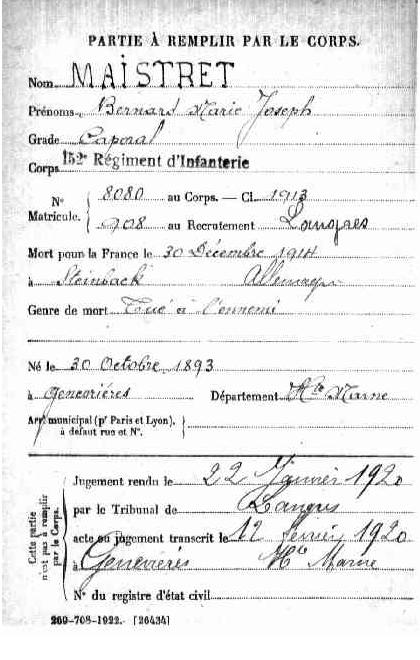 PARTIE À REMPLIR PAR LE CORPS.
Nom MAISTRET
Prénoms Bernard Marie Joseph
Grade Caporal
Corps 152e Régiment d'Infanterie
N° Matricule. { 8080 au Corps. — Cl. 1913
908 au Recrutement Langres
Mort pour la France le 30 Décembre 1914
à Steinback Allemagne
Genre de mort Tué à l'ennemi
Né le 30 Octobre 1893
à Genevrières Département Hte Marne
Arrt municipal (pr Paris et Lyon), à défaut rue et N°. }
Cette partie n'est pas à remplir par le Corps.
Jugement rendu le 22 Janvier 1920
par le Tribunal de Langres
acte ou jugement transcrit le 12 février 1920
à Genevrières Hte Marne
N° du registre d'état civil
269-708-1922. [26434]